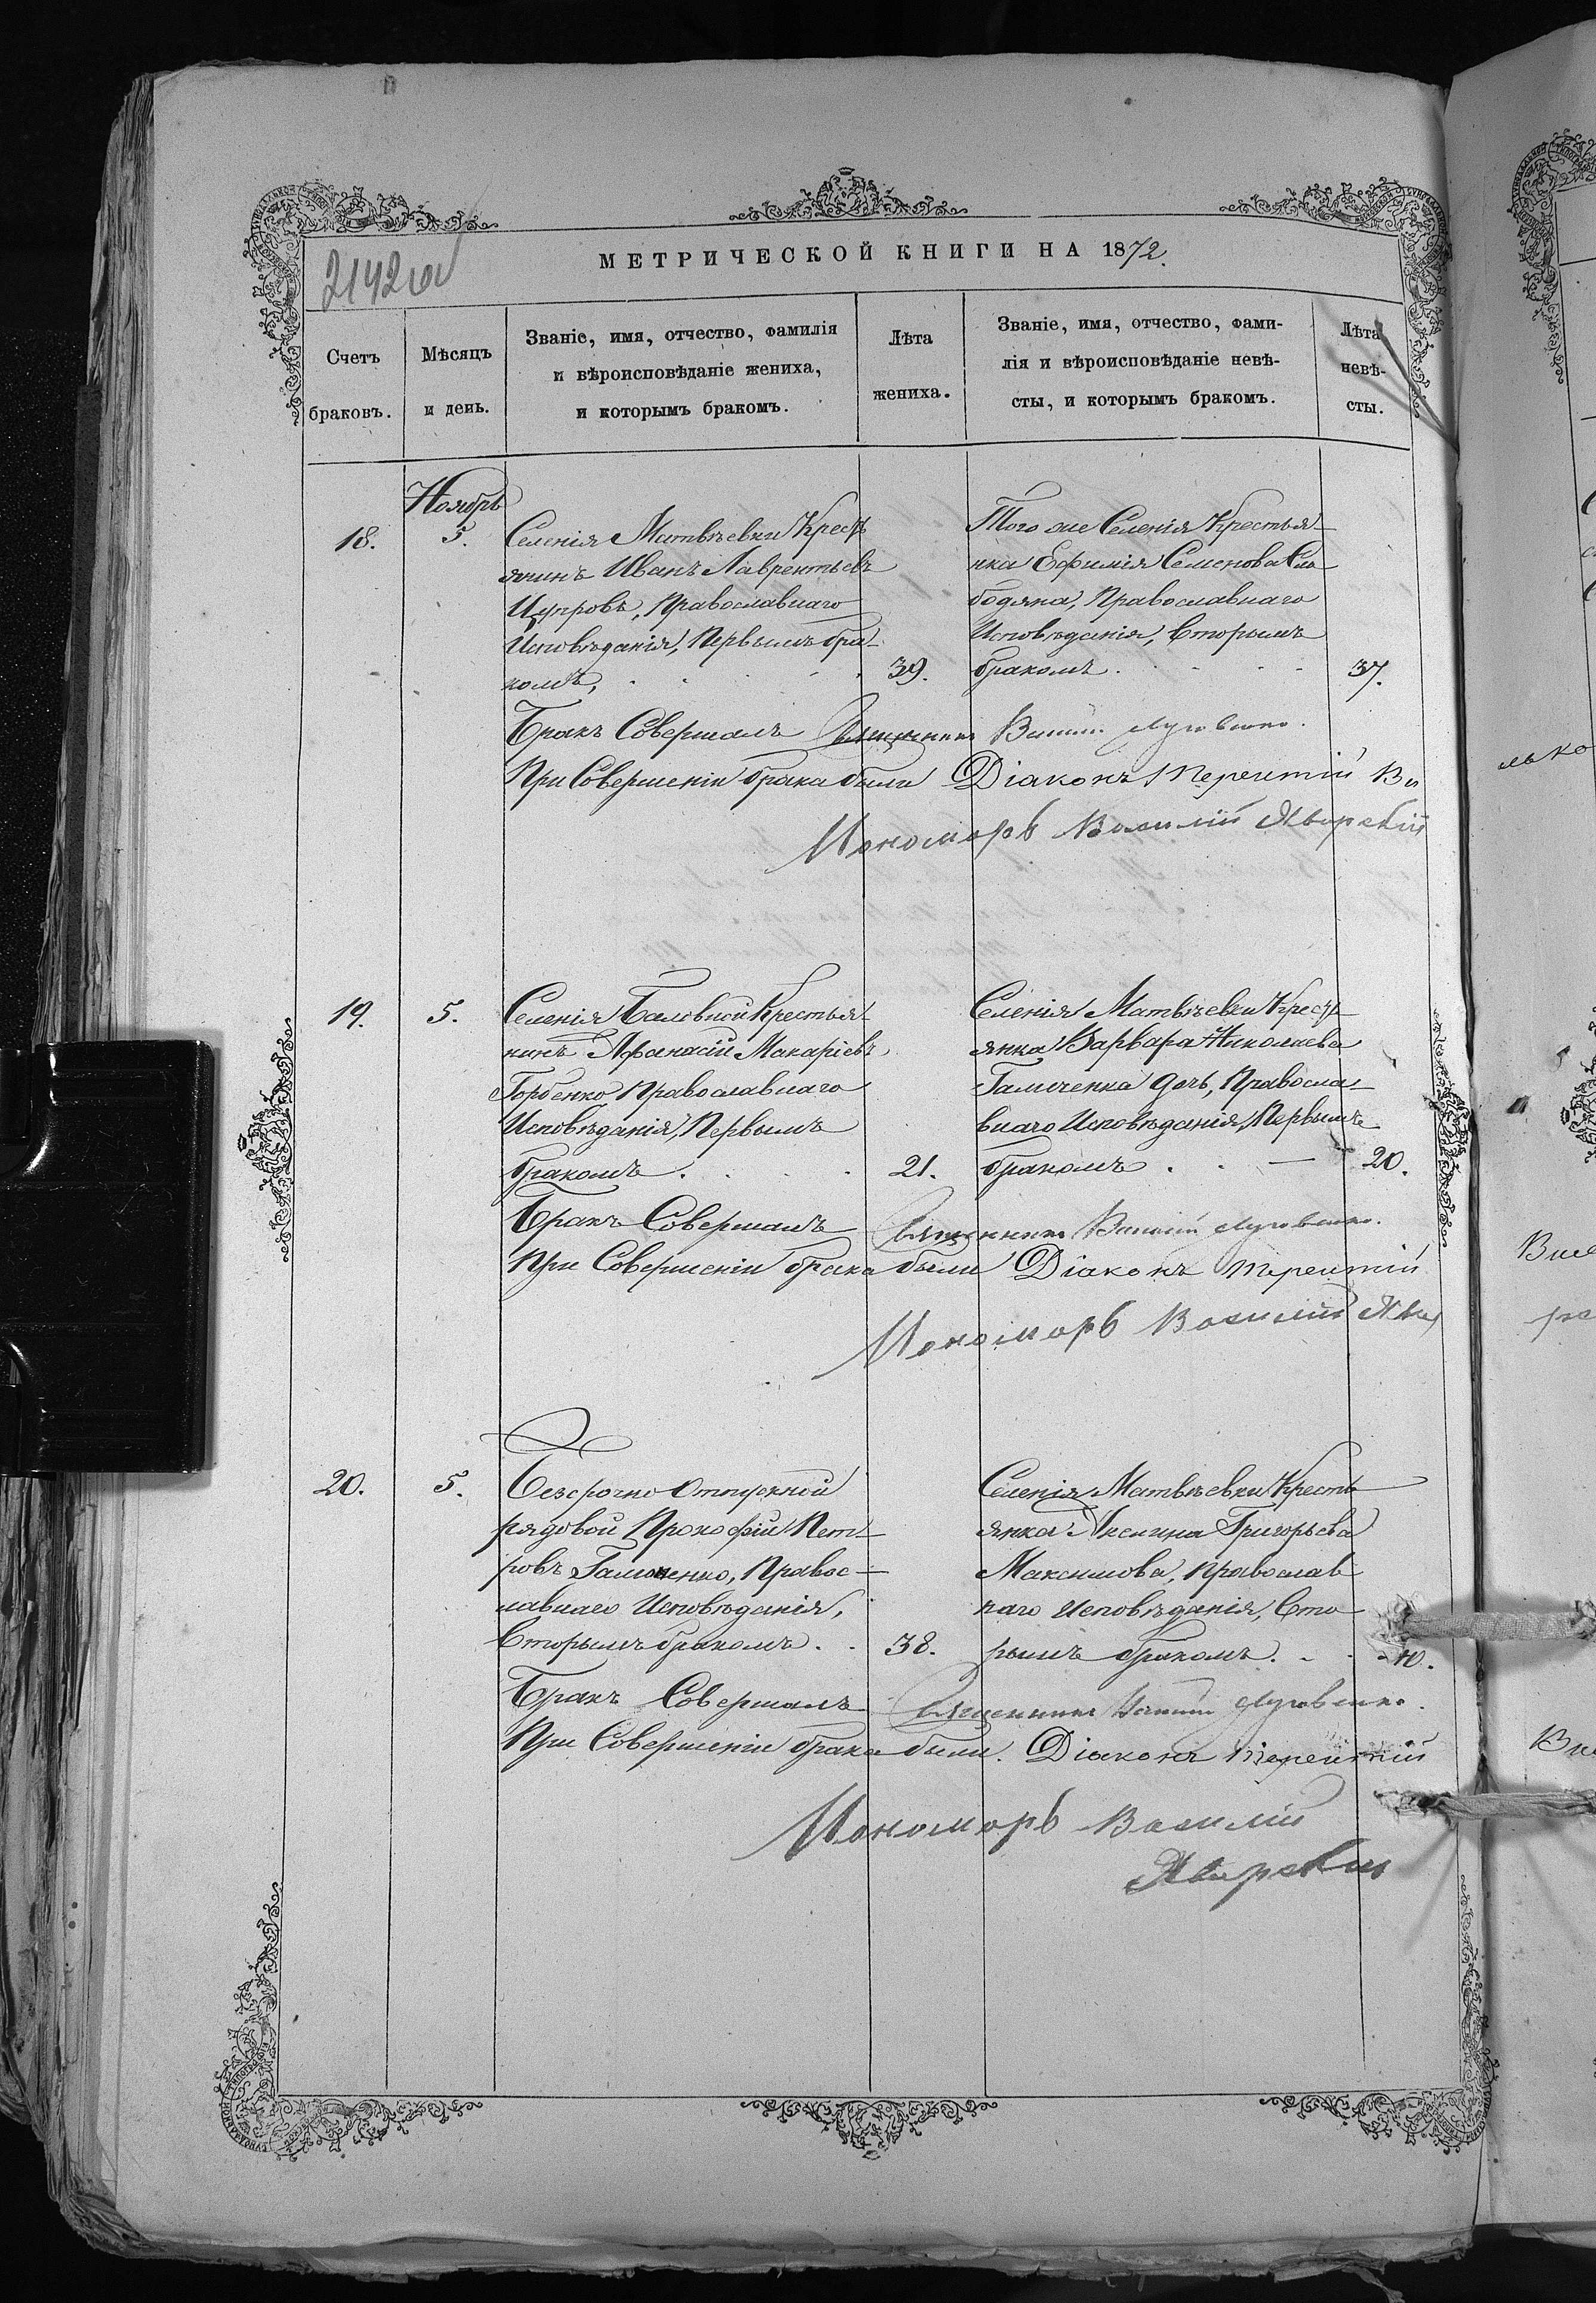 2142 об
МЕТРИЧЕСКОЙ КНИГИ НА 1872.
Счетъ браковъ.
Мѣсяцъ и день.
Званіе, имя, отчество, фамилія
и вѣроисповѣданіе жениха,
и которымъ бракомъ.
Лѣта жениха.
Званіе, имя, отчество, фами-
лія и вѣроисповѣданіе невѣ-
сты, и которымъ бракомъ.
Лѣта невѣ-
сты.
Ноябрь
18.
5.
Селенія Матвѣевки Кресть
янинъ Иванъ Лаврентьевъ
Цупровъ, Православнаго
Исповѣданія, Первымъ бра-
комъ,
39.
Того же Селенія Крестья-
нка Ефимія Семенова Сло
бодяна, Православнаго
Исповѣданія, Вторымъ
бракомъ.
37.
Бракъ Совершалъ Священникъ Луговенко.
При Совершеніи брака были Діаконъ Терентій Ви
Пономарь Василій Яворскій
19.
5.
Селенія Баловной Крестья-
нинъ Афанасій Макаріевъ
Горбенко Православнаго
Исповѣданія, Первымъ
бракомъ.
21.
Селенія Матвѣевки Кресть
янка Варвара Николаева
Галиченка дочь, Правосла-
внаго Исповѣданія, Первымъ
бракомъ.
20.
Бракъ Совершалъ Священникъ Луговенко.
При Совершеніи брака были Діаконъ Терентій
Пономарь Василій Яво
20.
5.
Безсрочно Отпускной
рядовой Прокофій Пет-
ровъ Правос-
лавнаго Исповѣданія,
Вторымъ бракомъ.
38.
Селенія Матвѣевки Кресть
янка Аксинья Григорьева
Максимова, Православ
наго Исповѣданія, Вто-
рымъ бракомъ.
Бракъ Совершалъ Священникъ Луговенко.
При Совершеніи брака были. Діаконъ Терентій
Пономарь Василій
Яворскій